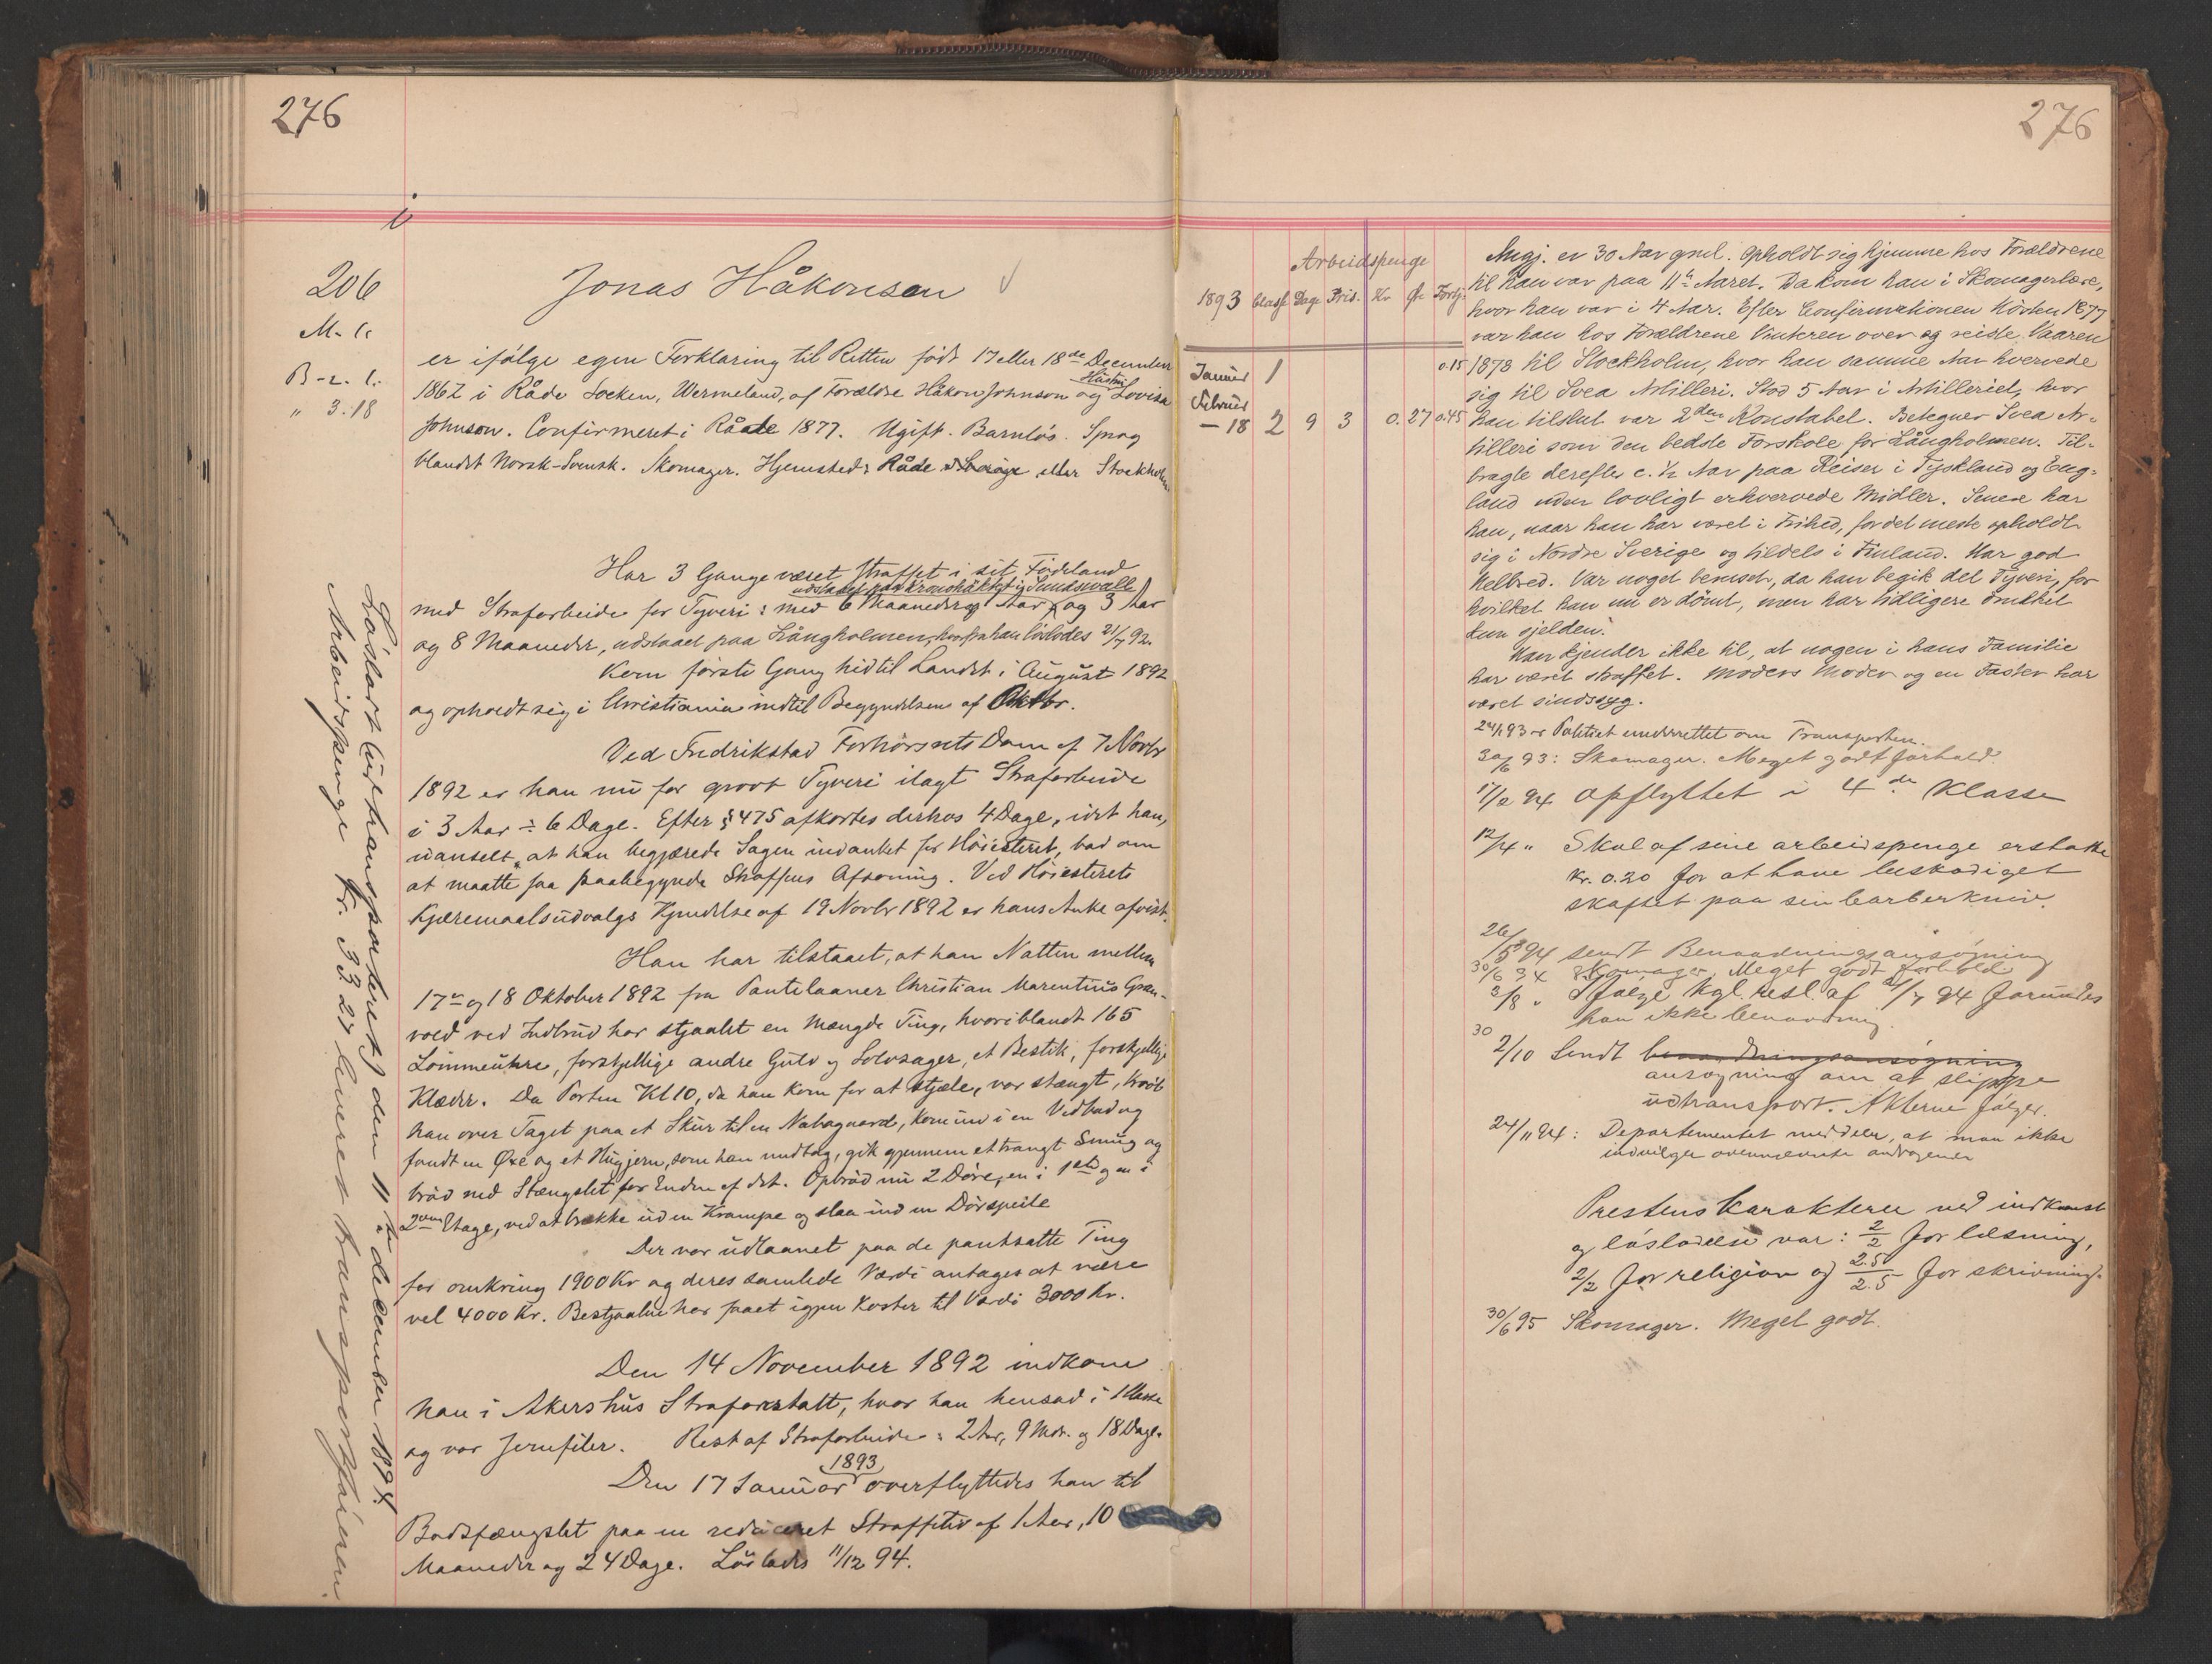 276
i
206
M. 1.
B-2. 1.
" 3.18
Jonas Håkonsen
er ifølge egen Forklaring til Retten født 17 eller 18de December
1862 i Råde Socken, Wermeland, af Forældre Håkon Johnson og Hustru Lovisa
Johnson. Confirmeret i Råde 1877. Ugift. Barnløs. Sprog
blandet Norsk-Svensk. Skomager. Hjemsted: Råde i Sverige eller Stockholm.
Har 3 Gange været straffet i sit Fødeland
udstaaet paa Kronohäktet i Sundsvall
med Strafarbeide for Tyveri: med 6 Maaneder, 1 Aar og 3 Aar
og 8 Maaneder, udstaaet paa Långholmen, hvorfra han løslodes 21/7 92.
Kom første Gang hid til Landet i August 1892
og opholdt sig i Christiania indtil Begyndelsen af Oktbr.
Ved Fredrikstad Forhørsrets Dom af 7 Novbr
1892 er han nu for grovt Tyveri ilagt Strafarbeide
i 3 Aar ÷ 6 Dage. Efter § 475 afkortes derhos 4 Dage, idet han,
uanseet, at han begjærede Sagen indanket for Høiesteret, bad om
at maatte faa paabegynde Straffens Afsoning. Ved Høiesterets
Kjæremaalsudvalgs Kjendelse af 19 Novbr 1892 er hans Anke afvist.
Han har tilstaaet, at han Natten mellem
17de og 18 Oktober 1892 fra Pantelaaner Christian Marentius Græn-
vold ved Indbrud har stjaalet en Mængde Ting, hvoriblandt 165
Lommeuhre, forskjellige andre Guld og Solvsager, et Bestik, forskjellige
Klæder. Da Porten Kl 10, da han kom for at stjæle, var stængt, krøb
han over Taget paa et Skur til en Nabogaard, kom ind i en Vedbod og
fandt en Øxe og et Hugjern, som han medtog, gik gjennem et trangt Smug og
brød ned Stængslet for Enden af det. Opbrød nu 2 Døre, en i 1ste og en i
2den Etage, ved at brække ud en Krampe og slaa ind en Dørspeile
Der var udlaanet paa de pantsatte Ting
for omkring 1900 Kr og deres samlede Værdi antages at være
vel 4000 Kr. Bestjaalne har faaet igjen Koster til Værdi 3000 Kr.
Den 14 November 1892 indkom
han i Akershus Strafanstalt, hvor han hensad i 1 Klasse
og var Jernfiler. Rest af Strafarbeide: 2 Aar, 9 Mdr. og 18 Dage.
Den 17 Januar 1893 overflyttedes han til
Bodsfængslet paa en reduceret Straffetid af 1 Aar, 10
Maaneder og 24 Dage. Løslades 11/12 94.
Løsladt (udtransporteret) den 11te december 1894.
Arbeidspenge kr. 33.27 leveret transportføreren.
276
Arbeidspenge
1893 Classe Dage Pris. Kr Øre Fortj.
Januar 1 0.15
Februar
— 18 2 9 3 0.27 0.45
Angj. er 30 Aar gml. Opholdt sig hjemme hos Forældrene
til han var paa 11te Aaret. Da kom han i Skomagerlære,
hvor han var i 4 Aar. Efter Confirmationen Høsten 1877
var han hos Forældrene Vinteren over og reiste Vaaren
1878 til Stockholm, hvor han samme Aar hvervede
sig til Svea Artilleri. Stod 5 Aar i Artilleriet, hvor
han tilslut var 2den Konstabel. Betegner Svea Ar-
tilleri som den bedste Forskole for Långholmen. Til-
bragte derefter c. 1/2 Aar paa Reiser i Tyskland og Eng-
land uden lovligt erhvervede Midler. Senere har
han, naar han har været i Frihed, for det meste opholdt
sig i Nordre Sverige og tildels i Finland. Har god
Helbred. Var noget beruset, da han begik det Tyveri, for
hvilket han nu er dømt, men har tidligere drukket
kun sjelden.
Han kjender ikke til, at nogen i hans Familie
har været straffet. Moders Moder og en Faster har
været sindssyg.
24/1 93 er Politiet underrettet om Transporten.
30/6 93: Skomager. Meget godt forhold.
17/2 94 Opflyttet i 4de Klasse
12/4 " Skal af sine arbeidspenge erstatte
kr. 0.20 for at have beskadiget
skaftet paa sin barberkniv.
26/5 94 sendt Benaadningsansøgning
30/6 94 Skomager. Meget godt forhold
3/8 " Ifølge kgl. resl. af 21/7 94 forundes
han ikke benaadning.
30
2/10 Sendt benaadningsansøgning
ansøgning om at slippe
udtransport. Akterne følger.
24/11 94: Departementet meddeler, at man ikke
indvilger ovennævnte andragende
Prestens Karakterer ved indkomst
og løsladelse var: 2/2 for læsning,
2/2 for religion og 2.5/2.5 for skrivning.
30/6 95 Skomager. Meget godt.